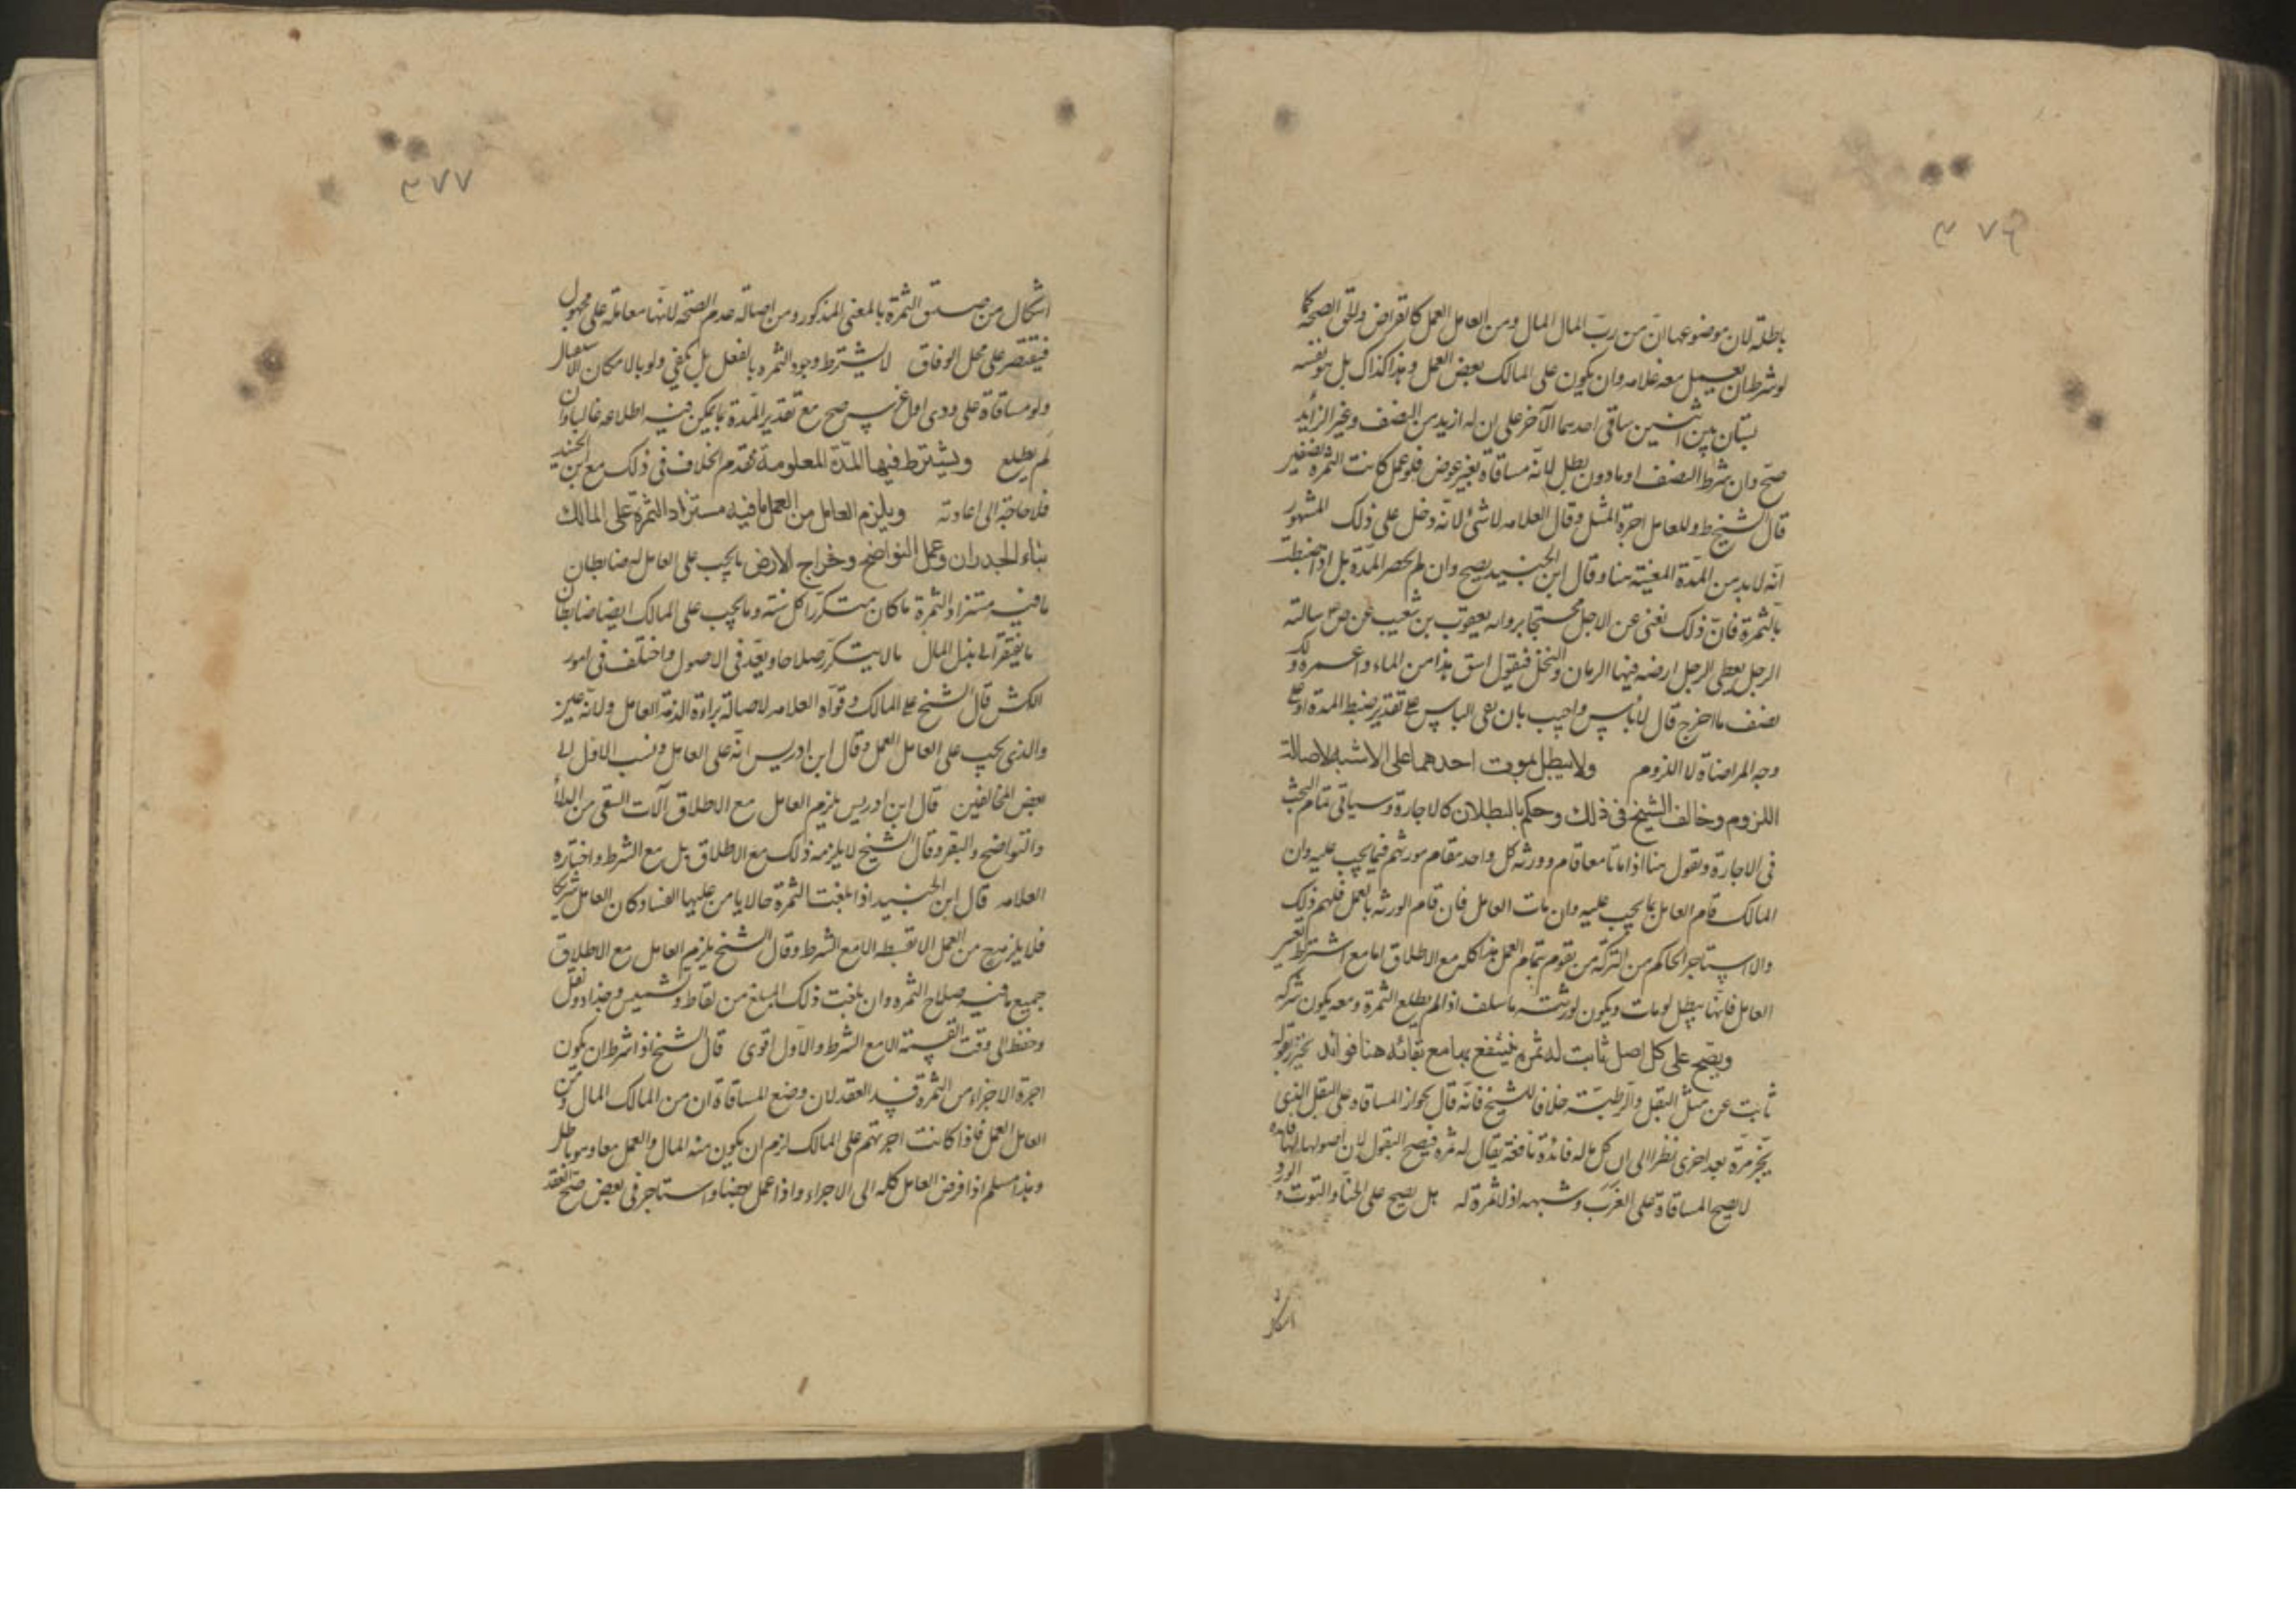 ٣٧٦
باطلة لان موضوعها ان من رب المال المال ومن العامل العمل كالقراض وللتقى الصحة كما
لو شرط ان يعمل معه غلامه وان يكون على المالك بعض العمل وهذا كذاك بل هو نفسه
بستان بين اثنين ساقى احدهما الآخر على ان له ازيد من النصف وغير الزائد
صح وان شرط النصف او ما دون بطل لانه مساقاة بغير عوض فلو عمل كانت الثمرة نصفين
قال الشيخ ط وللعامل اجرة المثل وقال العلامه لا شئ لانه دخل على ذلك المشهور
انه لا بد من المدة المعينة هنا وقال ابن الجنيد يصح وان لم يحصر المدة بل اذا ضبطت
بالثمرة فان ذلك يغنى عن الاجل محتجا برواية يعقوب بن شعيب عن ص سالته
الرجل يعطى الرجل ارضه فيها الرمان والنخل فيقول اسق هذا من الماء واعمره ولك
نصف ما اخرج قال لا بأس واجيب بان نفى الباس على تقدير ضبط المدة او على
وجه المراضاة لا اللزوم ولا يبطل بموت احدهما على الاشبه لاصالة
اللزوم وخالف الشيخ فى ذلك وحكم بالبطلان كالاجارة وسياتى تمام البحث
فى الاجارة ونقول هنا اذا ماتا معا قام وورثه كل واحد مقام مورثهم فيما يجب عليه وان
المالك قام العامل بما يجب عليه وان مات العامل فان قام الورثه بالعمل فلهم ذلك
والا استاجر الحاكم من التركة من يقوم بتمام العمل هذا كله مع الاطلاق اما مع اشتراط تعيين
العامل فانها يبطل لو مات ويكون لورثته ما سلف اذا لم يطلع الثمرة ومعه يكون شركه
ويصح على كل اصل ثابت له ثمرة ينتفع بها مع بقائه هنا فوائد يحترز بقوله
ثابت عن مثل البقل والرطبة خلافا للشيخ فانه قال بجواز المساقاه على البقل الذى
يجز مرة بعد اخرى نظرا الى ان كل ما له فائدة نافعة يقال له ثمره فيصح البقول لان اصولها لها فائدة
لا يصح المساقاة على الغرب وشبهه اذ لا ثمرة له بل يصح على الحنا والتوت والورد
اشكال
٣٧٧
اشكال من صدق الثمرة بالمعنى المذكور ومن اصالة عدم الصحة لانها معاملة على مجهول
فيقتصر على محل الوفاق لا يشترط وجود الثمره بالفعل بل يكفى ولو بالامكان الاستقبال
ولو مساقاة على ودى او غرس صح مع تقدير المدة بما يمكن فيه اطلاعه غالبا وان
لم يطلع ويشترط فيها المدة المعلومة تقدم الخلاف فى ذلك مع ابن الجنيد
فلا حاجة الى اعادته ويلزم العامل من العمل ما فيه مستزاد الثمرة وعلى المالك
بناء الجدران وعمل النواضح وخراج الارض ما يجب على العامل له ضابطان
ما فيه مستزاد الثمرة ما كان متكررا كل سنة وما يجب على المالك ايضا ضابطان
ما يفتقر الى بذل المال ما لا يتكرر صلاحا ويعد فى الاصول واختلف فى امور
الكش قال الشيخ على المالك وقواه العلامه لاصالة براءة الذمة العامل ولانه عين
والذى يجب على العامل العمل وقال ابن ادريس انه على العامل ونسب الاول الى
بعض المخالفين قال ابن ادريس يلزم العامل مع الاطلاق آلات السقى من الدلاء
والنواضح والبقر وقال الشيخ لا يلزمه ذلك مع الاطلاق بل مع الشرط واختاره
العلامه قال ابن الجنيد اذا بلغت الثمرة حالا يامن عليها الفساد كان العامل شريكا
فلا يلزم ح من العمل الا بقسطه الا مع الشرط وقال الشيخ يلزم العامل مع الاطلاق
جميع ما فيه صلاح الثمره وان بلغت ذلك المبلغ من لقاط وتشميس وجذاذ ونقل
وحفظ الى وقت القسمة الا مع الشرط والاول اقوى قال الشيخ اذا شرط ان يكون
اجرة الاجراء من الثمرة فسد العقد لان وضع المساقاة ان من المالك المال ومن
العامل العمل فاذا كانت اجرتهم على المالك لزم ان يكون منه المال والعمل معا وهو باطل
وهذا مسلم اذا فوض العامل كله الى الاجراء واذا عمل بعضا واستاجر فى بعض صح العقد